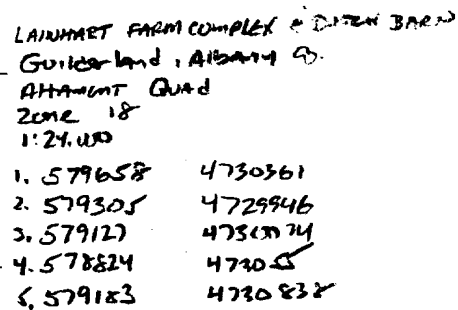 LAINHART FARM COMPLEX & DUTCH BARN
Guilderland, Albany Co.
Altamont Quad
Zone 18
1:24,000
1. 579658 4730361
2. 579305 4729946
3. 579127
4. 578824
5. 579183 4730838